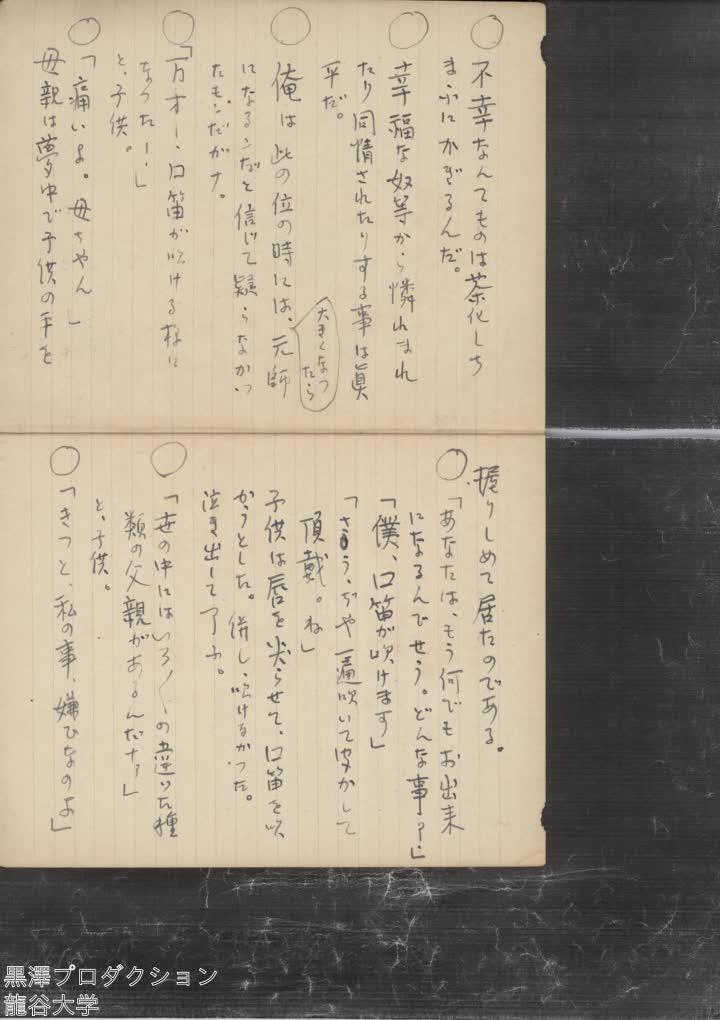 ○ 不幸なんてものは茶化しち
まふにかぎるんだ。
○ 幸福な奴等から憐れまれ
たり同情されたりする事は真
平だ。
○ 俺は此の位の時には、大きくなつたら元師
になるンだと信じて疑らなかつ
たモンだがナ。
○ 「万才ー、口笛が吹ける様に
なつたー、」
と、子供。
○ 「痛いよ。母ちやん」
母親は夢中で子供の手を
握りしめて居たのである。
○ 「あなたは、もう何でもお出来
になるんでせう。どんな事?」
「僕、口笛が吹けます」
「さう、ぢや一遍吹いて皮かして
頂戴。ね」
子供は唇を尖らせて、口笛を吹
かうとした。併し、吹けなかつた。
泣き出して了ふ。
○ 「世の中にはいろ〳〵の違つた種
類の父親があるんだナア」
と、子供。
○ 「きつと、私の事、嫌ひなのよ」
黒澤プロダクション
龍谷大学